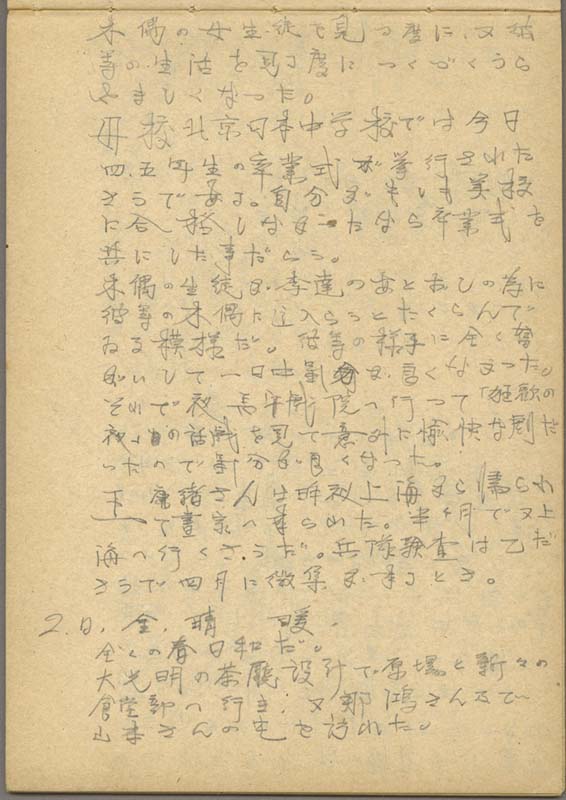 木偶の女生徒を見る度に、又彼
等の生活を見る度につくづくうら
やましくなった。
母校北京日本中学校では今日
四、五年生の卒業式が挙行された
さうである。自分がもしも美校
に合格しなかったなら卒業式を
共にした事だらう。
木偶の生徒が李達のあとおしの為に
彼等の木偶に注入らうとたくらんで
ゐる模様だ。彼等の様子に全く
がいして一日中気分が悪くなった。
それで夜、長安戯院へ行って「狂歌の
夜」の話劇を見て意外に愉快な劇だ
ったので気分が良くなった。
王 さん 昨夜上海から帰られ
て 家へ来られた。半ヶ月で又上
海へ行くさうだ。兵隊検査は乙だ
さうで四月に徴集が来るとき。
2.日、金、晴 暖、
全くの春日和だ。
大光明の茶廳設計で原場と新々の
食堂部へ行き、又 さんまで
山本さんの宅を訪れた。